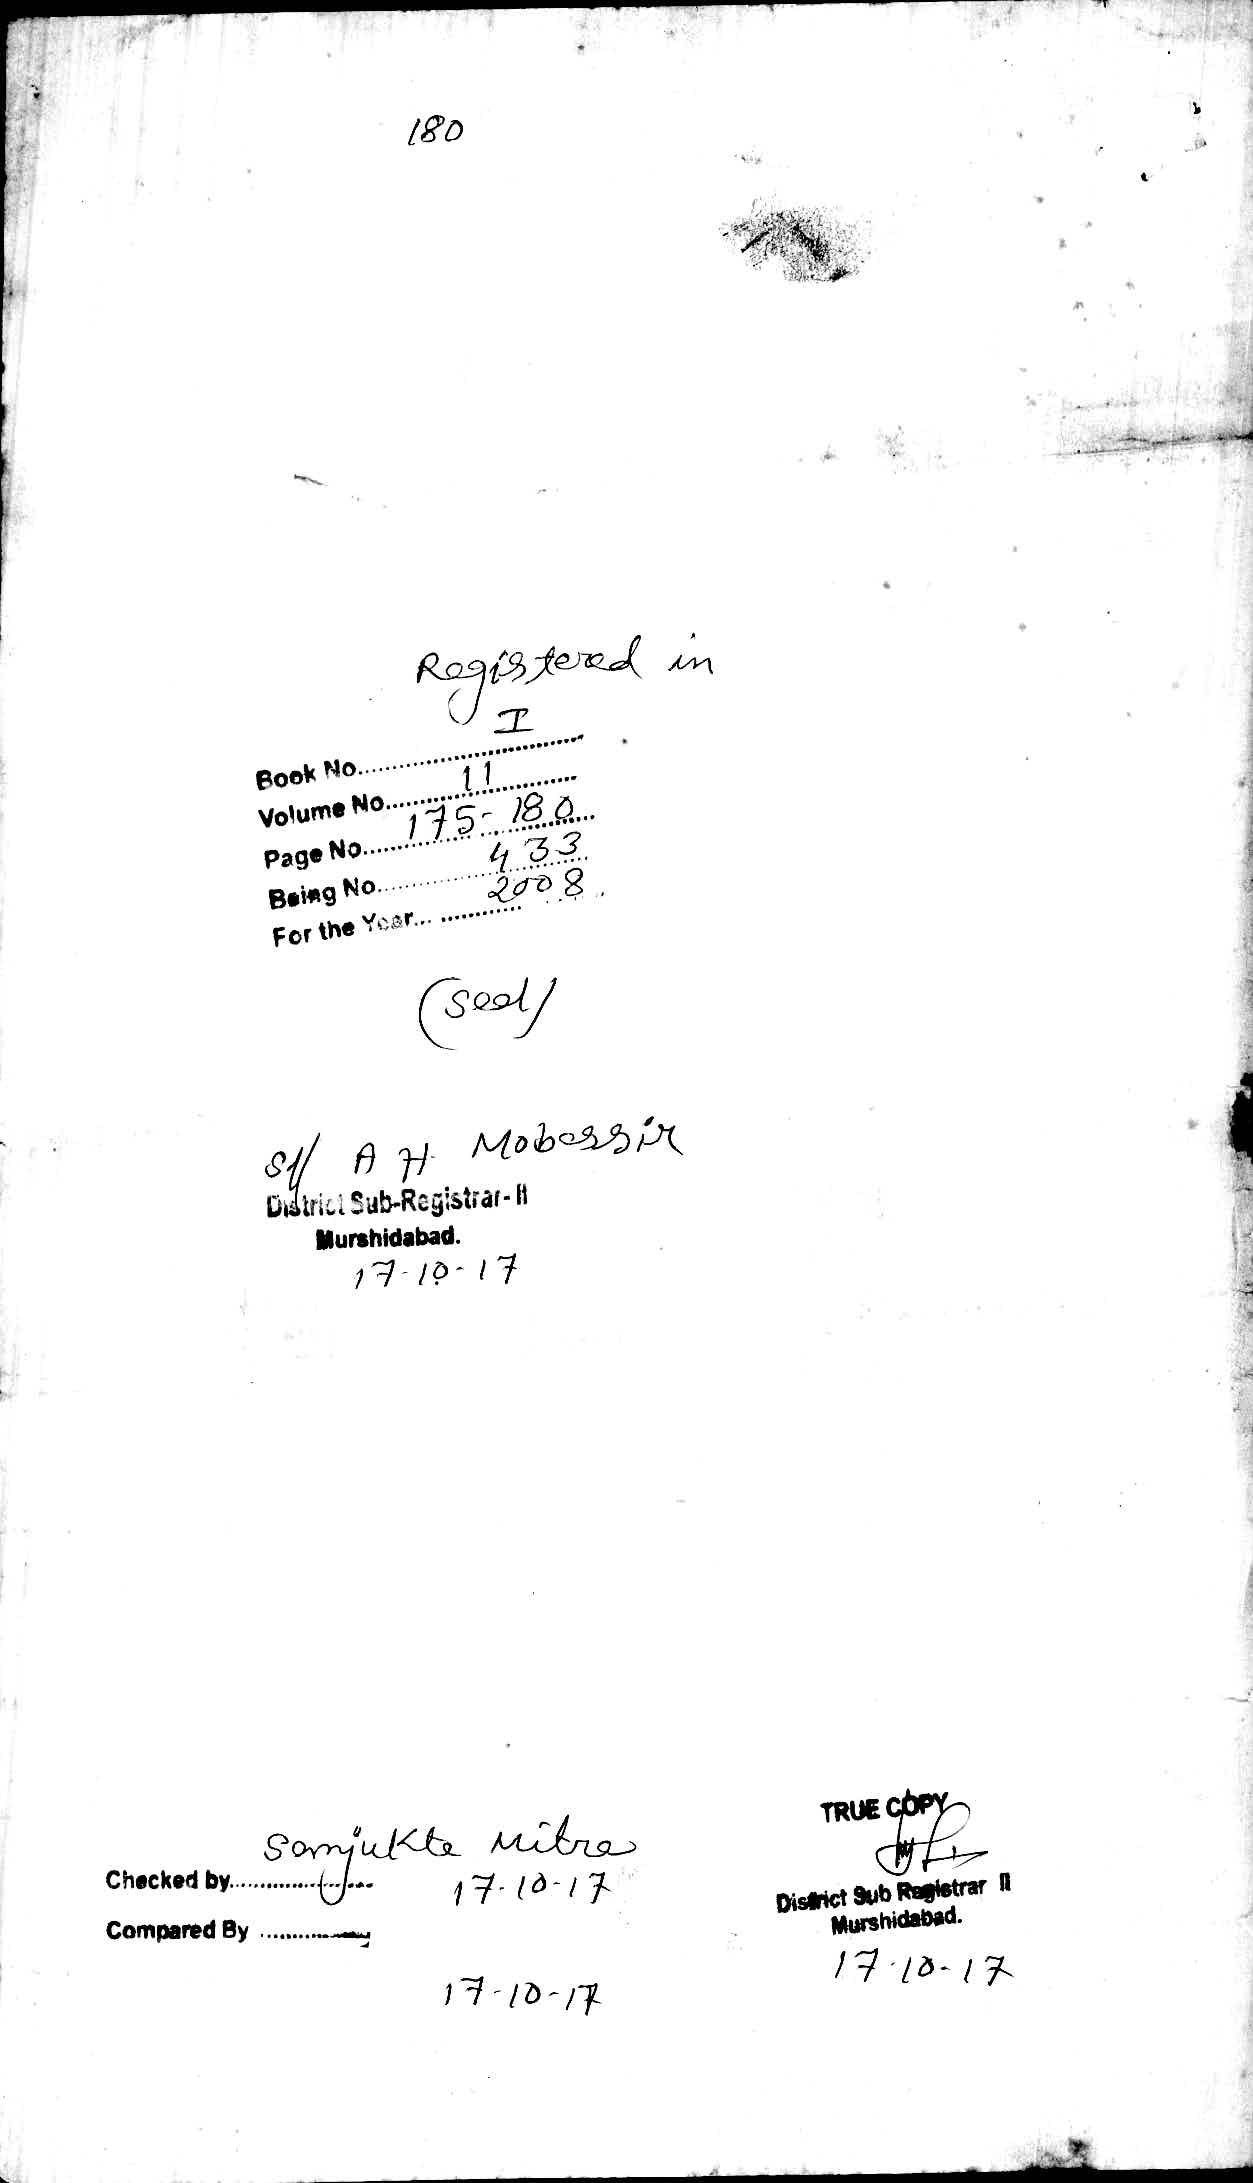 180
Registered in
Book No. I
Volume No. 11
Page No. 175-180
Being No. 433
For the Year 2008.
(Seal)
Sd/ A H. Mobassir
District Sub-Registrar-II
Murshidabad.
17-10-17
TRUE COPY
Samjukta Mitra
Checked by 17-10-17
District Sub Registrar II
Murshidabad.
Compared By
17-10-17
17-10-17